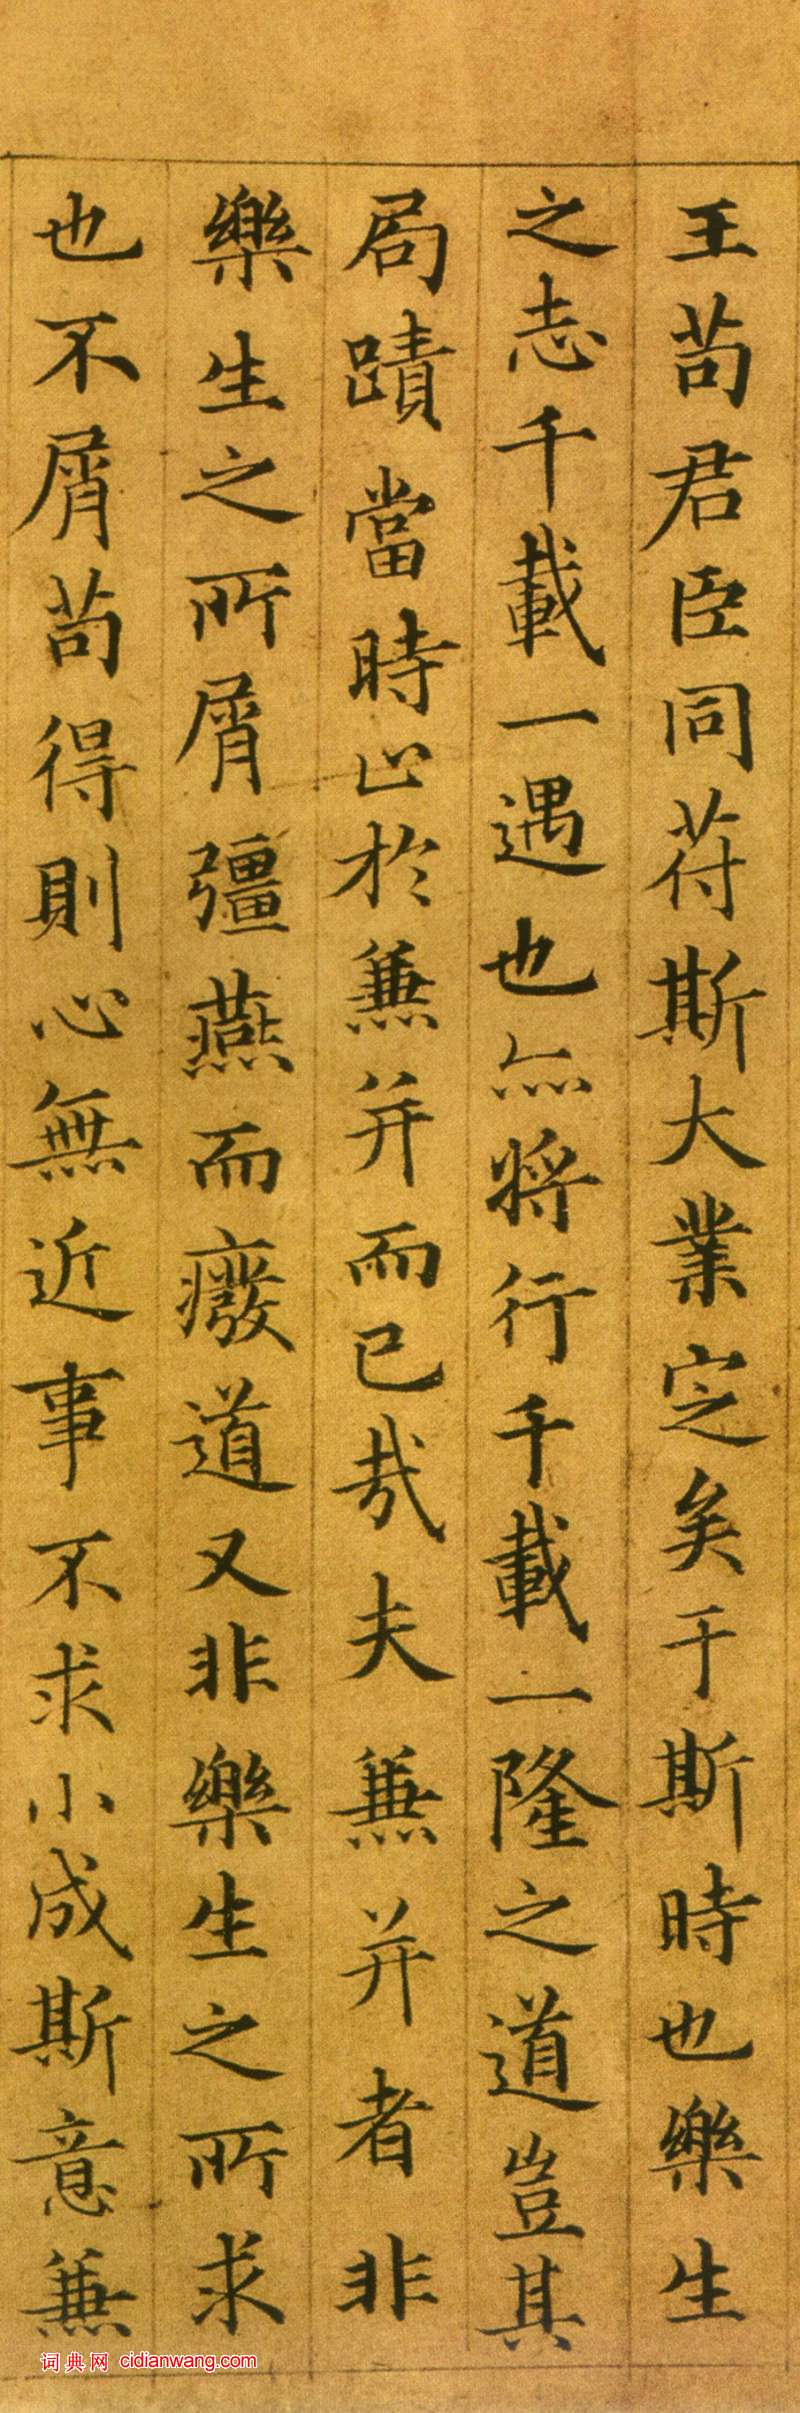 王苟君臣同苻斯大業定矣于斯時也樂生
之志千載一遇也亦將行千載一隆之道豈其
局蹟當時止於兼并而已哉夫兼并者非
樂生之所屑彊燕而癈道又非樂生之所求
也不屑苟得則心無近事不求小成斯意兼
词典网 cidianwang.com